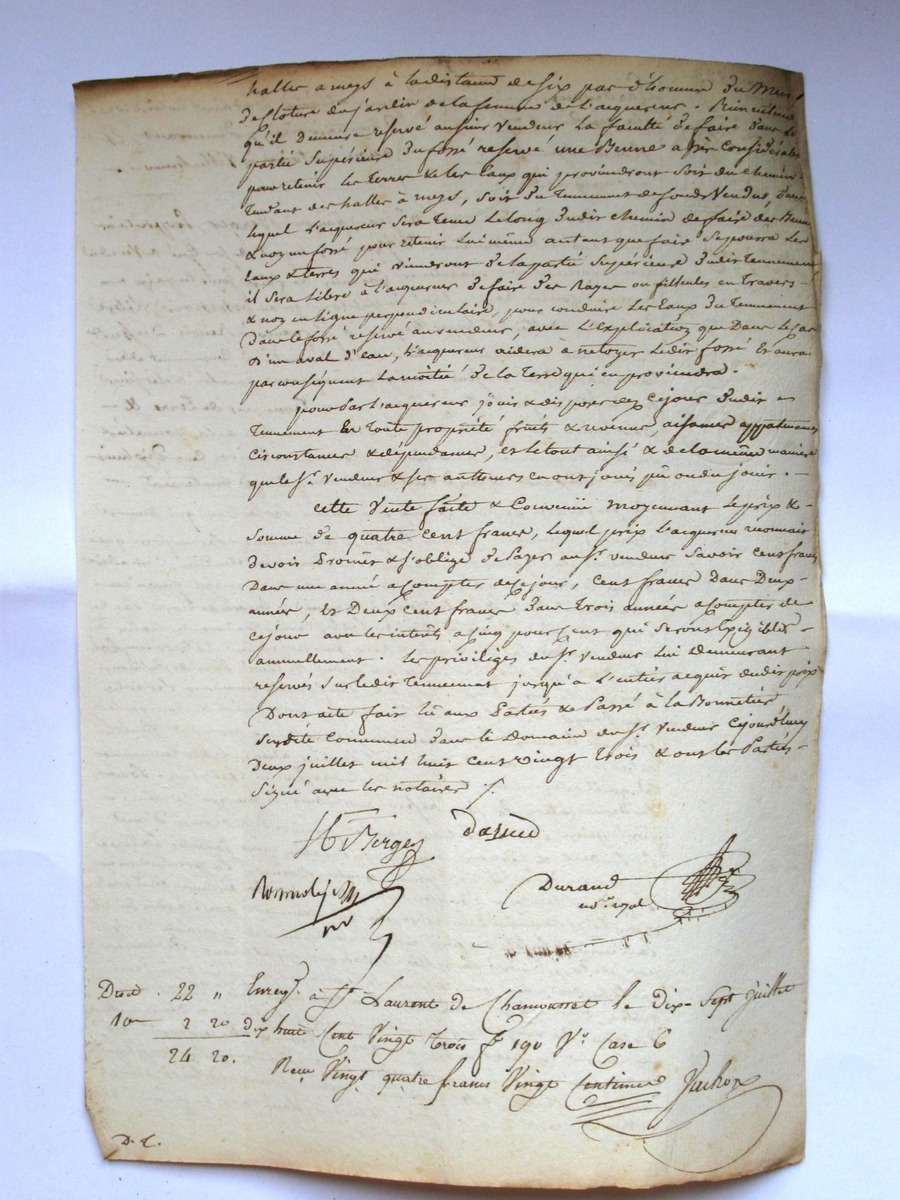 halles a meys à la distance de six pas d'homme du mur
de cloture du jardin de la femme de l'acquereur. Bien entendu
qu'il demeure reservé au sieur vendeur la faculté de faire dans la
partie supérieure du fossé reservé une Benne assès considérable
pour retenir les terres & les eaux qui proviendront soit du chemin
tendant des halles à meys, soit du tennement de fonds vendus, dans
lequel l'acquereur sera tenu le long dudit chemin de faire des Bennes
& non un fossé pour retenir lui même autant que faire se pourra les
eaux & terres qui viendront de la partie supérieure dudit tennement
il sera libre à l'acquereur de faire des rayes ou filtules en travers
& non en ligne perpendiculaire, pour conduire les eaux du tennement
dans le fossé reservé au vendeur, avec l'explication que dans le cas
d'un aval d'eau, l'acquereur aidera à netoyer ledit fossé et aura
par conséquent la moitié de la terre qui en proviendra.
pour par l'acquereur jouir & disposer dez ce jour dudit
tennement en toute propriété fruits & revenus, aisances appartenances
circonstances & dépendances, et le tout ainsi & de la même manière
que le Sr. vendeur & ses autteurs en ont joui pû ou du jouir.
cette vente faite & convenue moyennant le prix &
somme de quatre cent francs, lequel prix l'acquereur reconnait
devoir & s'oblige de payer au Sr. vendeur savoir cent francs
dans une année a compter de ce jour, cent francs dans deux
années, et deux cent francs dans trois années a compter de
ce jour avec les interêts a cinq pour cent qui seront exigibles
annuellement. les privilèges du Sr. vendeur lui demeurant
reservés sur ledit tennement jusqu'a l'entier acquit dudit prix
Dont acte fait lû aux Parties & Passé à la Bonnetiè
susdite commune dans le Domaine du Sr. vendeur cejourd'huy
deux juillet mil huit cent vingt trois & ont les Parties
signé avec les notaires /.
Berger
Durand
nore. royal
Droit . 22 " Enregé. à St. Laurent de Chamousset le dix-sept juillet
10e 2 20 dix huit cent vingt trois fo 190 Vo. Case 6
24 20. Reçu vingt quatre francs vingt centimes
D. C.